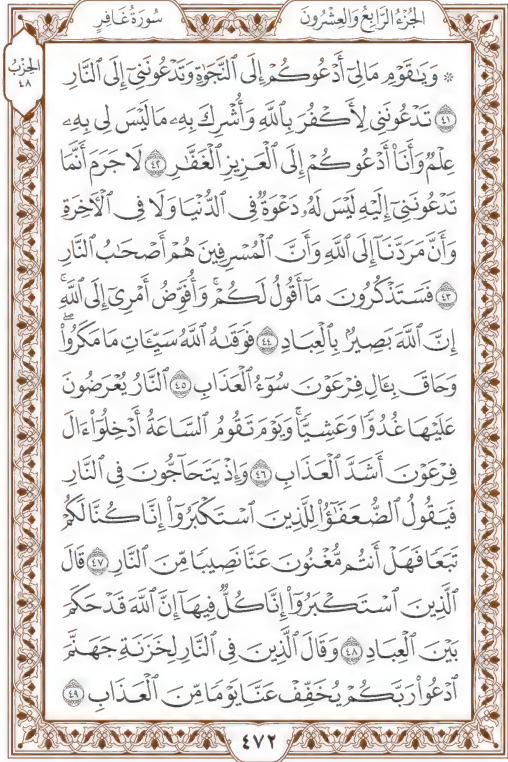 الجُزْءُ الرَّابِعُ وَالعِشْرُونَ
سُورَةُ غَافِرٍ
الحِزْبُ
٤٨
۞ وَيَٰقَوْمِ مَالِيٓ أَدْعُوكُمْ إِلَى ٱلنَّجَوٰةِ وَتَدْعُونَنِيٓ إِلَى ٱلنَّارِ
٤١ تَدْعُونَنِي لِأَكْفُرَ بِٱللَّهِ وَأُشْرِكَ بِهِۦ مَا لَيْسَ لِي بِهِۦ
عِلْمٌ وَأَنَا۠ أَدْعُوكُمْ إِلَى ٱلْعَزِيزِ ٱلْغَفَّٰرِ ٤٢ لَا جَرَمَ أَنَّمَا
تَدْعُونَنِيٓ إِلَيْهِ لَيْسَ لَهُۥ دَعْوَةٌ فِي ٱلدُّنْيَا وَلَا فِي ٱلْأٓخِرَةِ
وَأَنَّ مَرَدَّنَآ إِلَى ٱللَّهِ وَأَنَّ ٱلْمُسْرِفِينَ هُمْ أَصْحَٰبُ ٱلنَّارِ
٤٣ فَسَتَذْكُرُونَ مَآ أَقُولُ لَكُمْۚ وَأُفَوِّضُ أَمْرِيٓ إِلَى ٱللَّهِۚ
إِنَّ ٱللَّهَ بَصِيرٌۢ بِٱلْعِبَادِ ٤٤ فَوَقَىٰهُ ٱللَّهُ سَيِّـَٔاتِ مَا مَكَرُواْۖ
وَحَاقَ بِـَٔالِ فِرْعَوْنَ سُوٓءُ ٱلْعَذَابِ ٤٥ ٱلنَّارُ يُعْرَضُونَ
عَلَيْهَا غُدُوّٗا وَعَشِيّٗاۚ وَيَوْمَ تَقُومُ ٱلسَّاعَةُ أَدْخِلُوٓاْ ءَالَ
فِرْعَوْنَ أَشَدَّ ٱلْعَذَابِ ٤٦ وَإِذْ يَتَحَآجُّونَ فِي ٱلنَّارِ
فَيَقُولُ ٱلضُّعَفَٰٓؤُاْ لِلَّذِينَ ٱسْتَكْبَرُوٓاْ إِنَّا كُنَّا لَكُمْ
تَبَعٗا فَهَلْ أَنتُم مُّغْنُونَ عَنَّا نَصِيبٗا مِّنَ ٱلنَّارِ ٤٧ قَالَ
ٱلَّذِينَ ٱسْتَكْبَرُوٓاْ إِنَّا كُلّٞ فِيهَآ إِنَّ ٱللَّهَ قَدْ حَكَمَ
بَيْنَ ٱلْعِبَادِ ٤٨ وَقَالَ ٱلَّذِينَ فِي ٱلنَّارِ لِخَزَنَةِ جَهَنَّمَ
ٱدْعُواْ رَبَّكُمْ يُخَفِّفْ عَنَّا يَوْمٗا مِّنَ ٱلْعَذَابِ ٤٩
٤٧٢